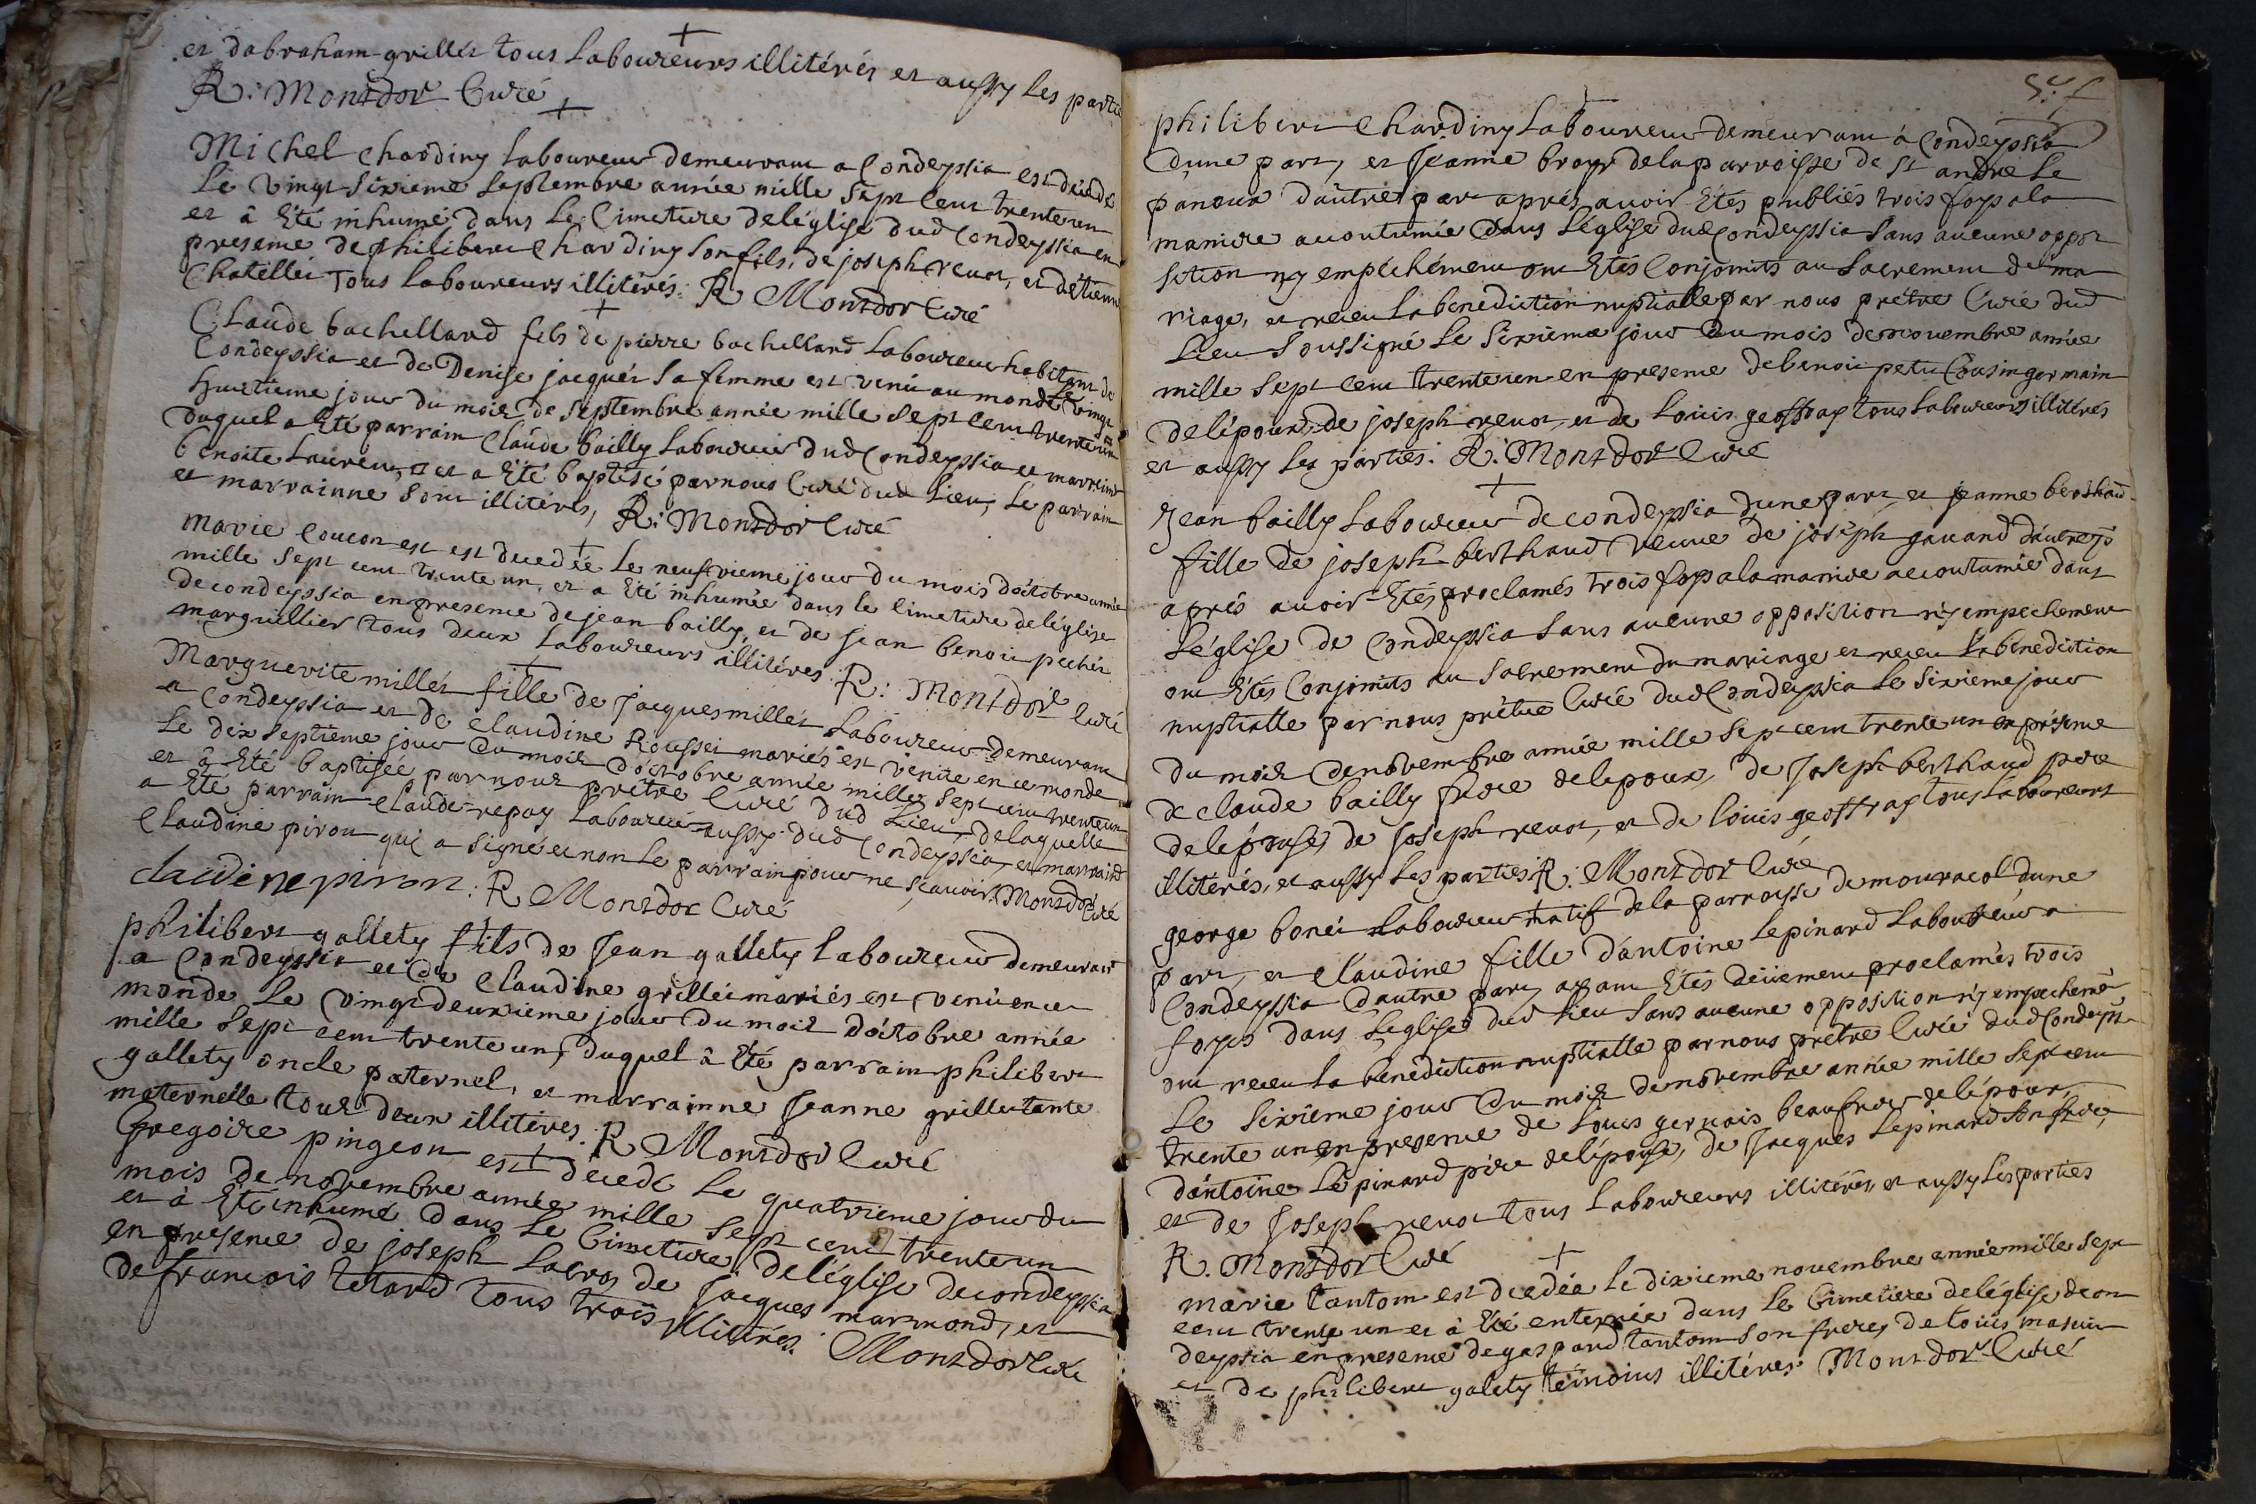 et dabraham grillet tous Laboureurs illitérés et aussy Les partie
R: Montdor Curé
Michel Chardiny Laboureur demeurant a Condeyssia est décédé
Le vingt sixieme septembre année mille sept cent trente un
et â Eté inhumé dans Le Cimetiere de léglise dud Condeyssia en
presence de philibert Chardiny son fils, de joseph revot, et détienne
Chatillet Tous Laboureurs illitérés. R Montdor Curé
Claude bachelland fils de pierre bachelland Laboureur habitant de
Condeyssia et de Denise jacquet sa femme est venu au monde Le vingt
huitieme jour du mois de septembre année mille sept cent trente un
duquel a Eté parrain Claude bailly Laboureur dud Condeyssia et marreine
benoite Laurent, et a Eté baptisé par nous Curé dud Lieu, Le parrain
et marrainne sont illitérés, R: Montdor Curé
Marie est decedée Le neufvieme jour du mois doctobre année
mille sept cent trente un, et a Eté inhumée dans le Cimetiere de léglise
de condeyssia en presence de jean bailly, et de jean benoit pechin
marguillier tous deux Laboureurs illitéres. R: Montdor Curé
Marguerite millet fille de Jacques millet Laboureur demeurant
a Condeyssia et de Claudine Rousset mariés est venue en ce monde
Le dix septieme jour du mois doctobre année mille sept cent trente un
et â Eté baptisée par nous prétre Curé dud Lieu, de laquelle
a Eté parrain Claude repay Laboureur aussy dud Condeyssia, et marraine
Claudine piron qui a signé et non Le parrain pour ne scavoir. Montdor Curé
claudine piron. R Montdor Curé
philibert gallety fils de Jean gallety Laboureur demeurant
a Condeyssia et de Claudine grillet mariés est venu en ce
monde Le vingt deuxieme jour du mois doctobre année
mille sept cent trente un, duquel â Eté parrain philibert
gallety oncle paternel, et marrainne Jeanne grillet tante
maternelle tous deux illitéres. R Montdor Curé
Gregoire pingeon est décedé Le quatrieme jour du
mois de novembre année mille sept cent trente un
et â Eté inhumé dans Le Cimetiere de léglise de condeyssia
en presence de joseph Lacros de Jacques marmond, et
de francois tetard tous trois illitérés. Montdor Curé
philibert Chardiny Laboureur demeurant à Condeyssia
dune part, et Jeanne broyr de la parroisse de st andre Le
panoux dautre part aprés avoir Etés publiés trois foys a la
maniere acoutumée dans Léglise dud Condeyssia sans aucune oppo
sition ny empéchément ont Etés Conjoints au Sacrement de ma
riage, et receu La benediction nuptialle par nous prétre Curé dud
Lieu soussigné Le sixieme jour du mois de novembre année
mille sept cent trente un en presence de benoit petit Cousin germain
de lépoux, de joseph revot, et de Louis geoffray tous Laboureurs illitérés
et aussy Les parties. R: Montdor Curé
Jean bailly Laboureur de condeyssia dune part, et jeanne berthaud
fille de joseph berthaud veuve de joseph gavand dautre p
aprés avoir Etés proclamés trois foys a la maniere accoutumée dans
Léglise de Condeyssia sans aucune opposition ny empechement
ont Etés Conjoints au Sacrement du mariage et receu La benediction
nuptialle par nous prétre Curé dud Condeyssia Le sixieme jour
du mois de novembre année mille sept cent trente un en présence
de claude bailly frere de lépoux, de Joseph berthaud pere
de lépouse, de Joseph revot, et de louis geoffray tous Laboureurs
illitérés, et aussy Les parties R: Montdor Curé
george bonet Laboureur natif de la parroisse de mouracol dune
part, et Claudine fille dantoine Lepinard Laboureur a
Condeyssia dautre part, ayant Etés deüement proclamés trois
foys dans Leglise dud Lieu sans aucune opposition ny empechemt
ont receu La benediction nuptialle par nous prétre Curé dud Condeyss
Le sixieme jour du mois de novembre année mille sept cent
trente un en presence de Louis gervais beaufrere de lépoux,
dantoine Lepinard pére de lépouse, de Jacques Lepinard son frére,
et de Joseph revot tous Laboureurs illitérés, et aussy Les parties
R. Montdor Curé
Marie tantom est decedée Le dixieme novembre année mille sept
cent trente un et à Eté enterrée dans Le Cimetiere de léglise de con
deyssia en presence de gaspard tantom son frere, de loüis masuir
et de philibert galety illitéres. Montdor Curé